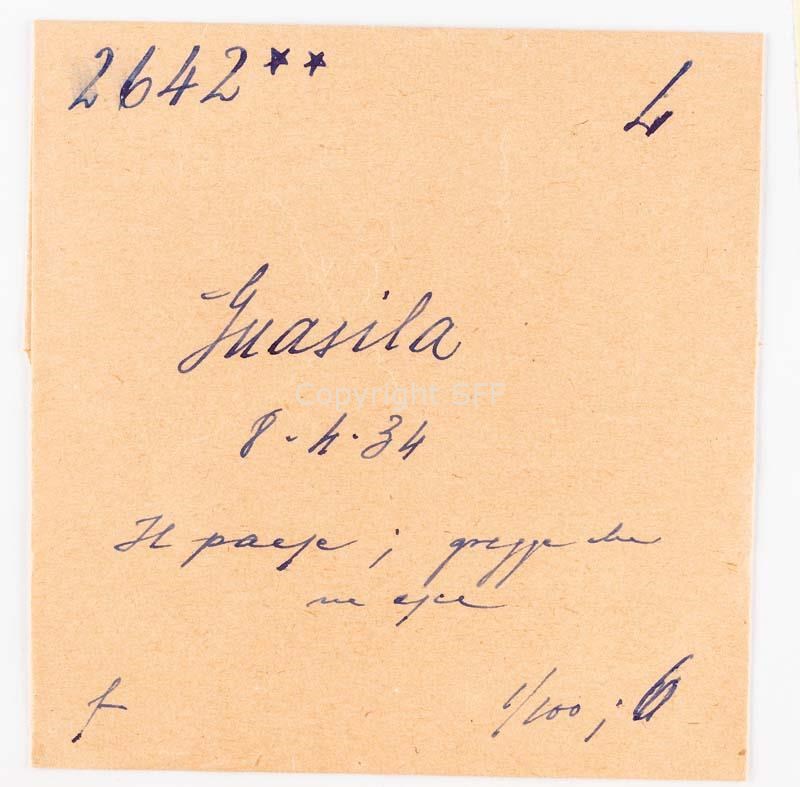 2642** L
Guasila
Copyright SFF
8-4-34
Il paese; gregge che
ne esce
f
1/100; 6